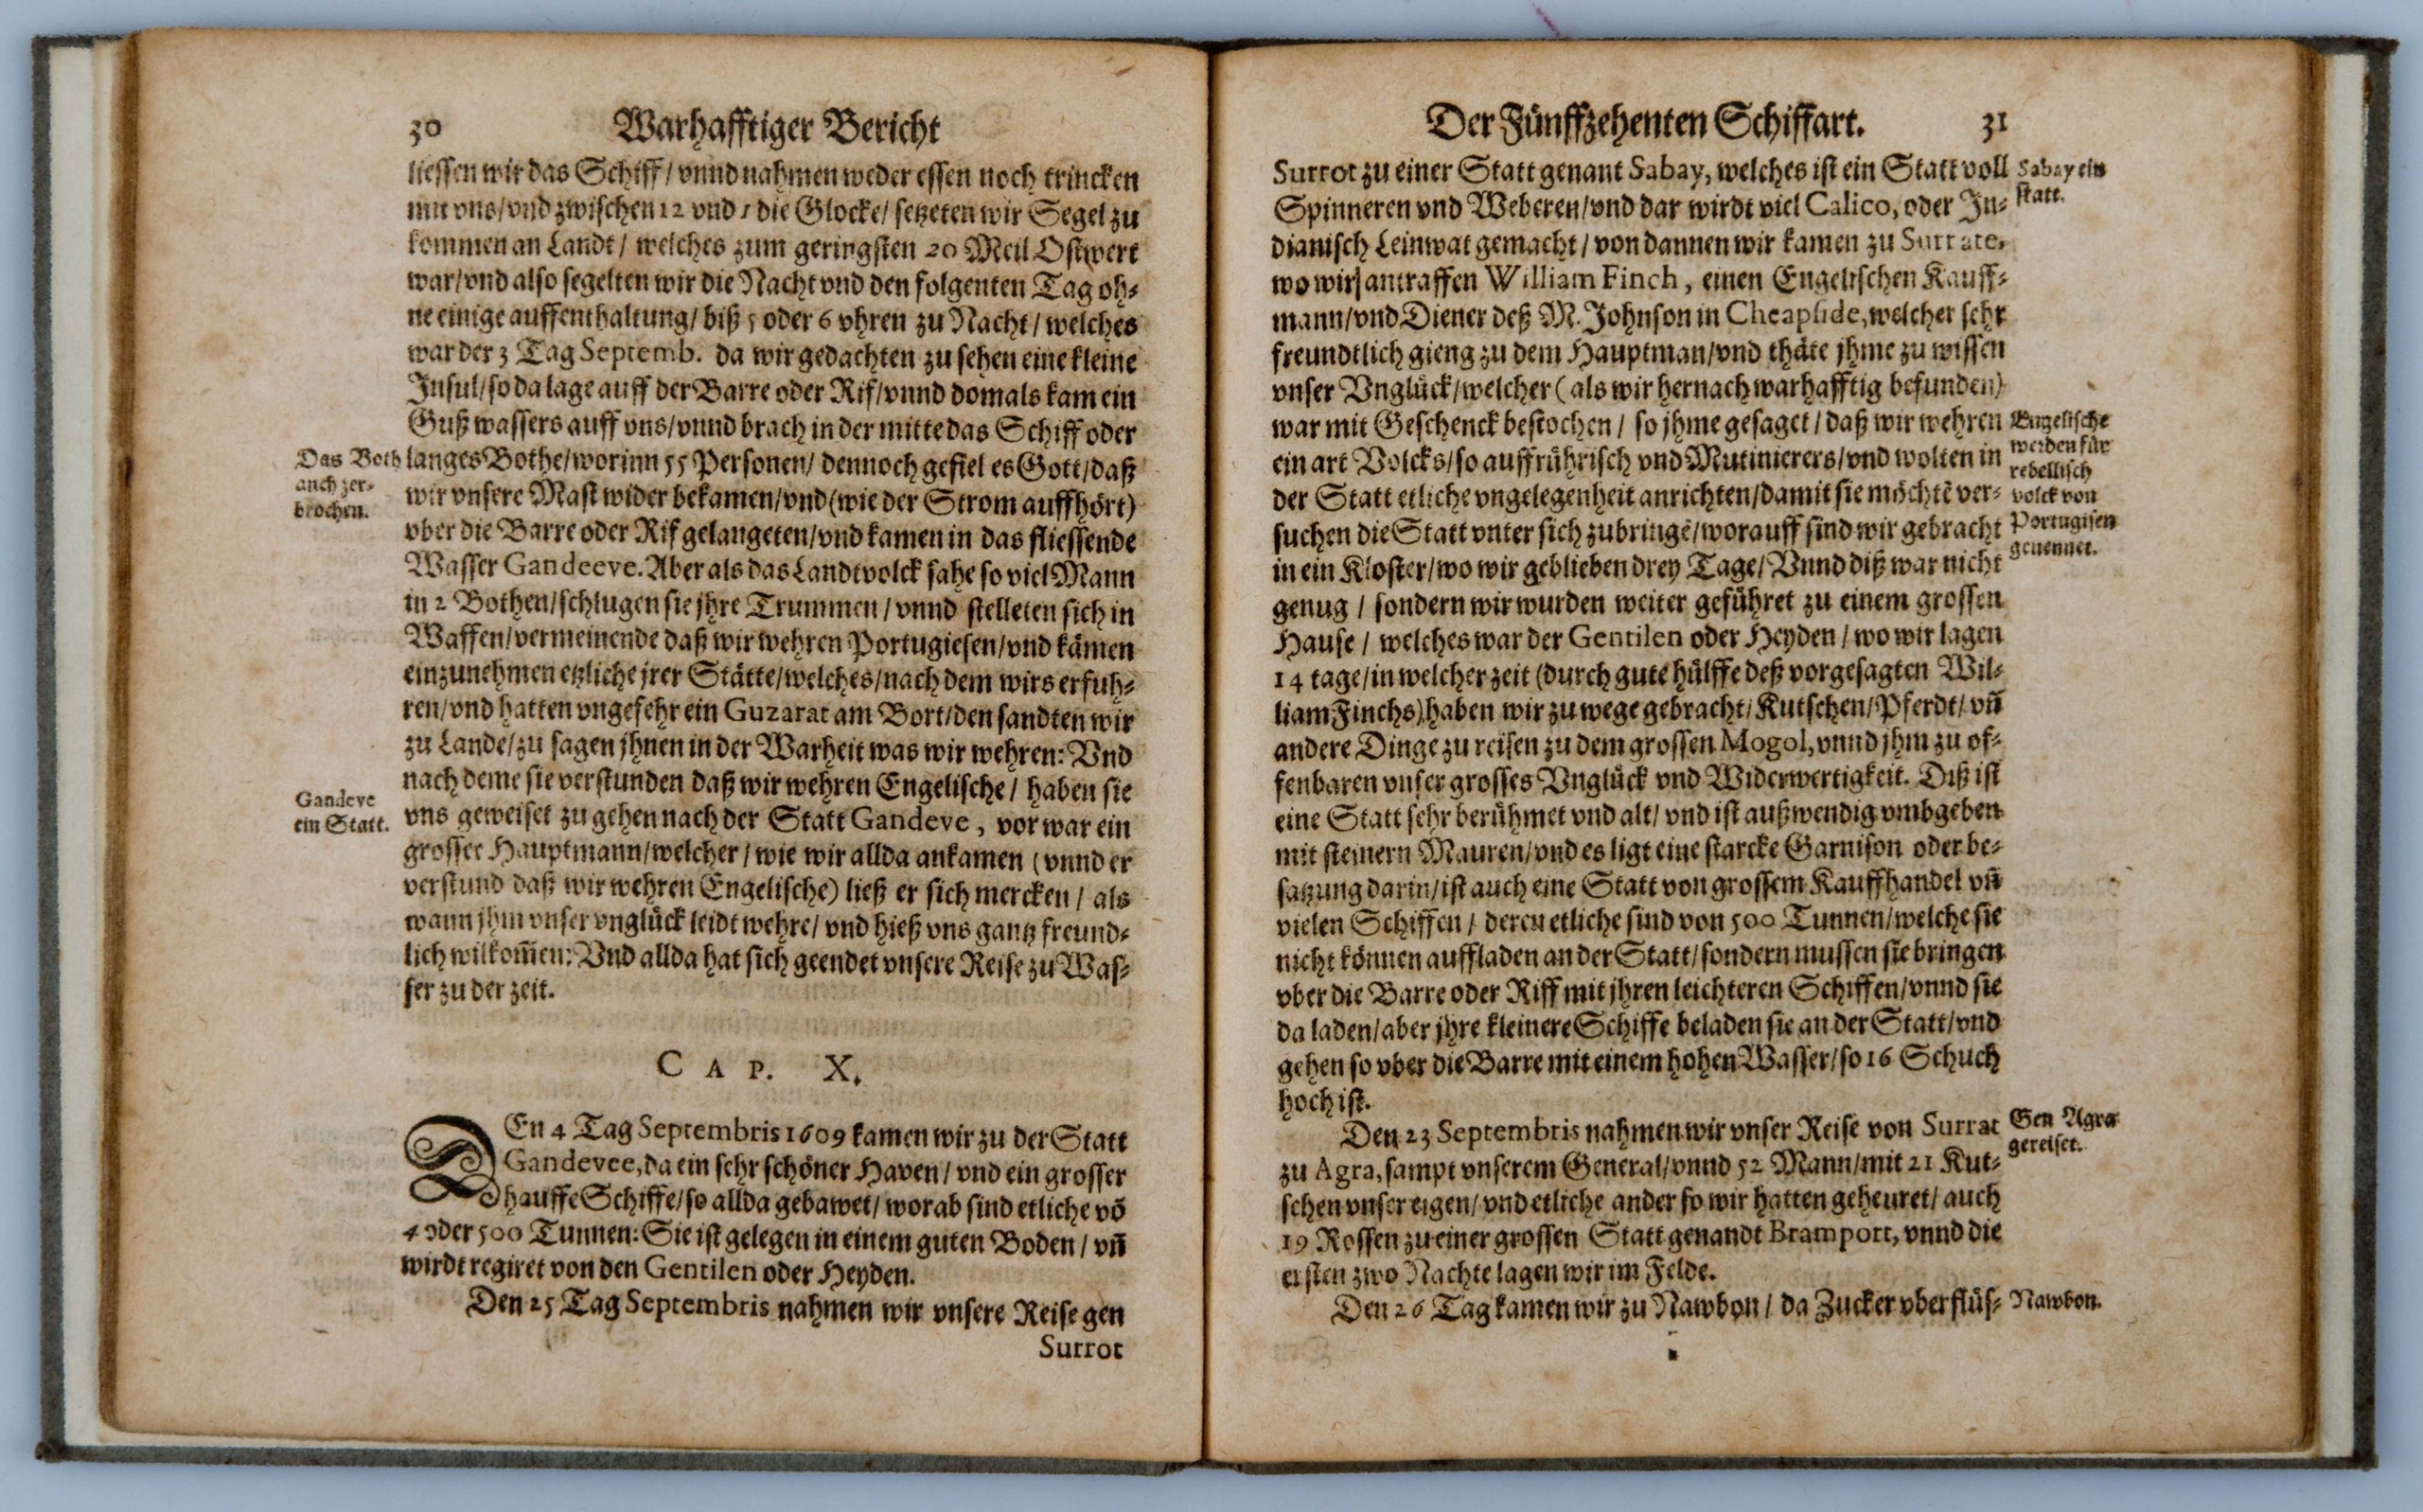 30 Warhafftiger Bericht
liessen wir das Schiff / vnnd nahmen weder essen noch trincken
mit vns / vnd zwischen 12 vnd 1 die Glocke / setzeten wir Segel zu
kommen an Landt / welches zum geringsten 20 Meil Ostwert
war / vnd also segelten wir die Nacht vnd den folgenten Tag oh⸗
ne einige auffenthaltung / biß 5 oder 6 vhren zu Nacht / welches
war der 3 Tag Septemb. da wir gedachten zu sehen eine kleine
Insul / so da lage auff der Barre oder Rif / vnnd domals kam ein
Guß wassers auff vns / vnnd brach in der mitte das Schiff oder
langes Bothe / worinn 55 Personen / dennoch gefiel es Gott / daß
wir vnsere Mast wider bekamen / vnd (wie der Strom auffhört)
vber die Barre oder Rif gelangeten / vnd kamen in das fliessende
Wasser Gandeeve. Aber als das Landtvolck sahe so viel Mann
in 2 Bothen / schlugen sie jhre Trummen / vnnd stelleten sich in
Waffen / vermeinende daß wir wehren Portugiesen / vnd kämen
einzunehmen etzliche jrer Stätte / welches / nach dem wirs erfuh⸗
ren / vnd hatten vngefehr ein Guzarat am Bort / den sandten wir
zu Lande / zu sagen jhnen in der Warheit was wir wehren: Vnd
nach deme sie verstunden daß wir wehren Engelische / haben sie
vns geweiset zu gehen nach der Statt Gandeve , vor war ein
grosser Hauptmann / welcher / wie wir allda ankamen (vnnd er
verstund daß wir wehren Engelische) ließ er sich mercken / als
wann jhm vnser vnglück leidt wehre / vnd hieß vns gantz freund⸗
lich wilkom̃en: Vnd allda hat sich geendet vnsere Reise zu Was⸗
ser zu der zeit.
Das Both
auch zer⸗
brochen.
Gandeve
ein Statt.
CAP. X.
DEn 4 Tag Septembris 1609 kamen wir zu der Statt
Gandevee, da ein sehr schöner Haven / vnd ein grosser
hauffe Schiffe / so allda gebawet / worab sind etliche võ
4 oder 500 Tunnen: Sie ist gelegen in einem guten Boden / vñ
wirdt regiret von den Gentilen oder Heyden.
Den 25 Tag Septembris nahmen wir vnsere Reise gen
Surrot
Der Fünffzehenten Schiffart. 31
Surrot zu einer Statt genant Sabay, welches ist ein Statt voll
Spinneren vnd Weberen / vnd dar wirdt viel Calico, oder In⸗
dianisch Leinwat gemacht / von dannen wir kamen zu Surrate,
wo wir antraffen William Finch, einen Engelischen Kauff⸗
mann / vnd Diener deß M. Johnson in Cheapside, welcher sehr
freundtlich gieng zu dem Hauptman / vnd thäte jhme zu wissen
vnser Vnglück / welcher (als wir hernach warhafftig befunden)
war mit Geschenck bestochen / so jhme gesaget / daß wir wehren
ein art Volcks / so auffrührisch vnd Mutinierers / vnd wolten in
der Statt etliche vngelegenheit anrichten / damit sie möchtẽ ver⸗
suchen die Statt vnter sich zubringẽ / worauff sind wir gebracht
in ein Kloster / wo wir geblieben drey Tage / Vnnd diß war nicht
genug / sondern wir wurden weiter geführet zu einem grossen
Hause / welches war der Gentilen oder Heyden / wo wir lagen
14 tage / in welcher zeit (durch gute hülffe deß vorgesagten Wil⸗
liam Finchs) haben wir zu wege gebracht / Kutschen / Pferdt / vñ
andere Dinge zu reisen zu dem grossen Mogol, vnnd jhm zu of⸗
fenbaren vnser grosses Vnglück vnd Widerwertigkeit. Diß ist
eine Statt sehr berühmet vnd alt / vnd ist außwendig vmbgeben
mit steinern Mauren / vnd es ligt eine starcke Garnison oder be⸗
satzung darin / ist auch eine Statt von grossem Kauffhandel vñ
vielen Schiffen / deren etliche sind von 500 Tunnen / welche sie
nicht können auffladen an der Statt / sondern mussen sie bringen
vber die Barre oder Riff mit jhren leichteren Schiffen / vnnd sie
da laden / aber jhre kleinere Schiffe beladen sie an der Statt / vnd
gehen so vber die Barre mit einem hohen Wasser / so 16 Schuch
hoch ist.
Den 23 Septembris nahmen wir vnser Reise von Surrat
zu Agra, sampt vnserem General / vnnd 52 Mann / mit 21 Kut⸗
schen vnser eigen / vnd etliche ander so wir hatten geheuret / auch
19 Rossen zu einer grossen Statt genandt Bramport, vnnd die
ersten zwo Nachte lagen wir im Felde.
Den 26 Tag kamen wir zu Nawbon / da Zucker vberflüs⸗
Sabay ein
statt.
Engelische
werden für
rebellisch
volck von
Portugisen
genennet.
Gen Agra
gereiset.
Nawbon.